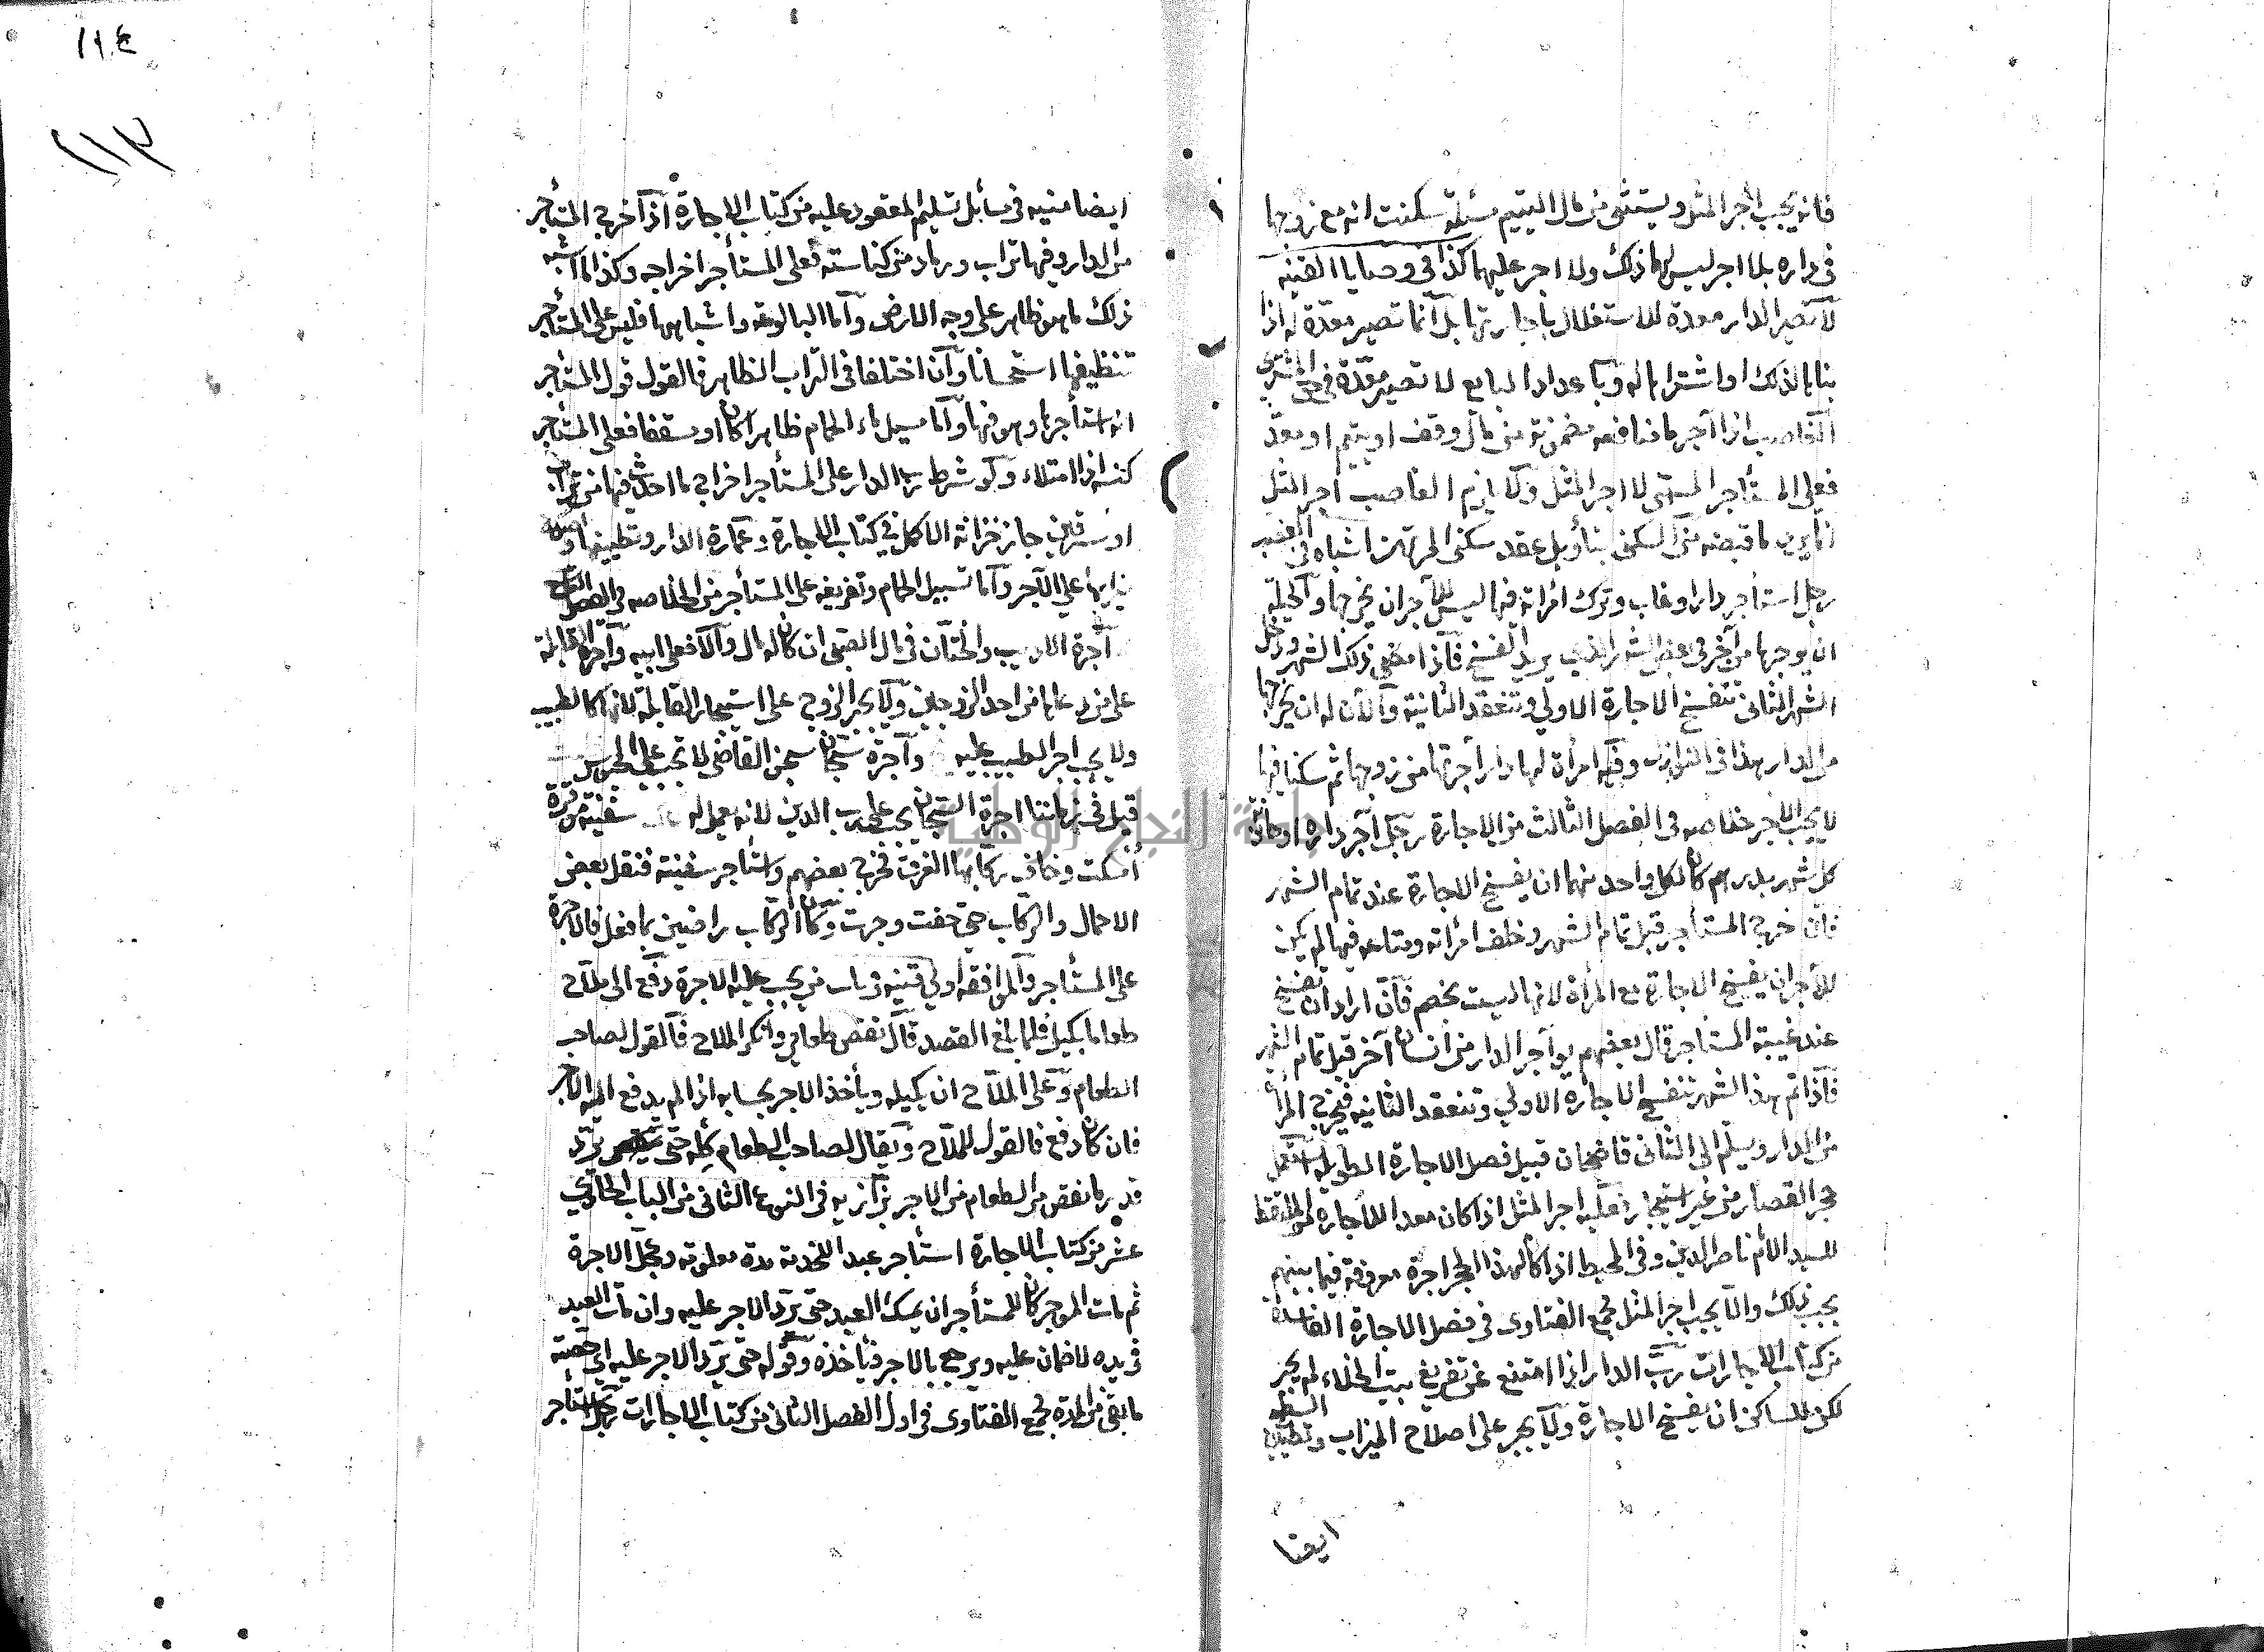 فانه يجب اجر المثل ويستثنى من مال اليتيم مسئلة سكنت امه مع زوجها
فى داره بلا اجر ليس لهما ذلك ولا اجر عليهما كذا فى وصايا القنية
لا تصير الدار معدة للاستغلال باجارتها بل انما تصير معدة له اذا
بناها لذلك او اشتراها له وباعداد البايع لا تصير معدة فى حق المشترى
الغاصب اذا آجر ما منافعه مضمونة من مال وقف او يتيم او معد
فعلى المستأجر المسمى لا اجر المثل ولا يلزم الغاصب اجر المثل
انما يرد ما قبضه من السكنى بتأويل عقد سكنى المرتهن اشباه فى الغصب
رجل استأجر دارا وغاب وترك امرأته فيها ليس للآجر ان يخرجها والحيلة
ان يوجرها من آخر فى بعض الشهر الذى يريد الفسخ فاذا مضى ذلك الشهر ودخل
الشهر الثانى تنفسخ الاجارة الاولى وتنعقد الثانية والآن له ان يخرجها
من الدار هذا فى النوازل وفيه امرأة لها دار آجرتها من زوجها ثم سكنا فيها
لا يجب الاجر خلاصه فى الفصل الثالث من الاجارة رجل آجر داره او حانوته
كل شهر بدرهم كان لكل واحد منهما ان يفسخ الاجارة عند تمام الشهر
فان خرج المستأجر قبل تمام الشهر وخلف امرأته ومتاعه فيها لم يكن
للآجر ان يفسخ الاجارة مع المرأة لانها ليست بخصم فان اراد ان تفسخ
عند غيبة المستأجر قال بعضهم يوآجر الدار من انسان آخر قبل تمام الشهر
فاذا تم هذا الشهر تنفسخ الاجارة الاولى وتنعقد الثانيه فيخرج المرأة
من الدار ويسلم الى الثانى قاضيخان قبيل فصل الاجارة الطويلة استعمل
حجر القصار من غير استيجار فعليه اجر المثل اذا كان معدا للاجارة الملتقط
للسيد الامام ناصر الدين وفى المحيط اذا كان لهذا الحجر اجرة معروفة فيما بينهم
يجب ذلك والا يجب اجر المثل مجمع الفتاوى فى فصل الاجارة الفاسدة
من كتاب الاجارات رب الدار اذا امتنع عن تفريغ بيت الخلاء لم يجبر
لكن للساكن ان يفسخ الاجارة ولا يجبر على اصلاح الميزاب وتطيين السطح
ايضا
١١٤
١١٣
ايضا منيه فى مسائل تسليم المعقود عليه من كتاب الاجارة اذا خرج المستأجر
من الدار وفيها تراب ورماد من كناسته فعلى المستأجر اخراجه وكذا ما اشبه
ذلك مما هو ظاهر على وجه الارض واما البالوعة واشباهها فليس على المستأجر
تنظيفها استحسانا وان اختلفا فى التراب الظاهر فالقول قول المستأجر
انه استأجرها وهو فيها واما مسيل ماء الحمام ظاهرا كان او مسقفا فعلى المستأجر
كنسه اذا امتلاء ولو شرط رب الدار على المستأجر اخراج ما احدث فيها من تراب
او سرقين جاز خزانة الاكمل فى كتاب الاجارة وعمارة الدار وتطيينها واصلاح
ميزابها على الآجر واما تسييل الحمام وتفريغه على المستأجر من الخلاصه فى الفصل التاسع
اجرة الاديب والختان فى مال الصبى ان كان له مال والا فعلى ابيه واجرة القابلة
على من دعاها من احد الزوجين ولا يجبر الزوج على استيجار القابلة لانها كالطبيب
ولا يجب اجر الطبيب عليه واجرة سجان سجن القاضى لا تجب على المحبوس
قيل فى زماننا اجرة السجان يجب على رب الدين لانه يعمل له سفينة موقرة
أمسكت وخاف ركابها الغرق فخرج بعضهم واستأجر سفينة فنقل بعض
الاحمال والركاب حتى خفت وجرت وكان الركاب راضين بما فعل فالاجرة
على المستأجر والموافقه اولى قنيه فى باب من يجب عليه الاجرة دفع الى ملاح
طعاما بكيل فلما بلغ القصد قال نقص طعامى وانكر الملاح فالقول لصاحب
الطعام وعلى الملاح ان يكيله ويأخذ الاجر بحسابه اذا لم يدفع اليه الاجر
فان كان دفع فالقول للملاح ويقال لصاحب الطعام كله حتى يرد
قدر ما نقص من الطعام من الاجر بزازيه فى النوع الثانى من الباب الحادى
عشر من كتاب الاجارة استأجر عبدا للخدمة مدة معلومة وعجل الاجرة
ثم مات الموجر كان للمستأجر ان يمسك العبد حتى يرد الاجر عليه وان مات العبد
فى يده لا ضمان عليه ويرجع بالاجر فيأخذه وقوله حتى يرد الاجر عليه اى حصته
ما بقى من المدة مجمع الفتاوى فى اول الفصل الثانى من كتاب الاجارات رجل استأجر
جامعة النجاح الوطنية